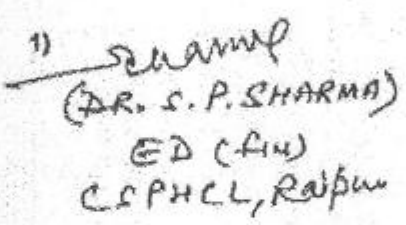 1) Sharma
(DR. S. P. SHARMA)
ED (fin)
CSPHCL, Raipur